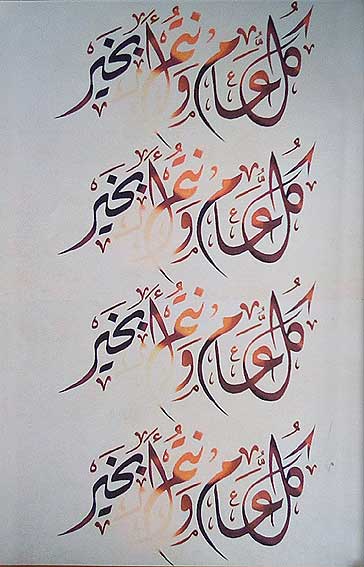 كل عام وأنتم بخير
كل عام وأنتم بخير
كل عام وأنتم بخير
كل عام وأنتم بخير